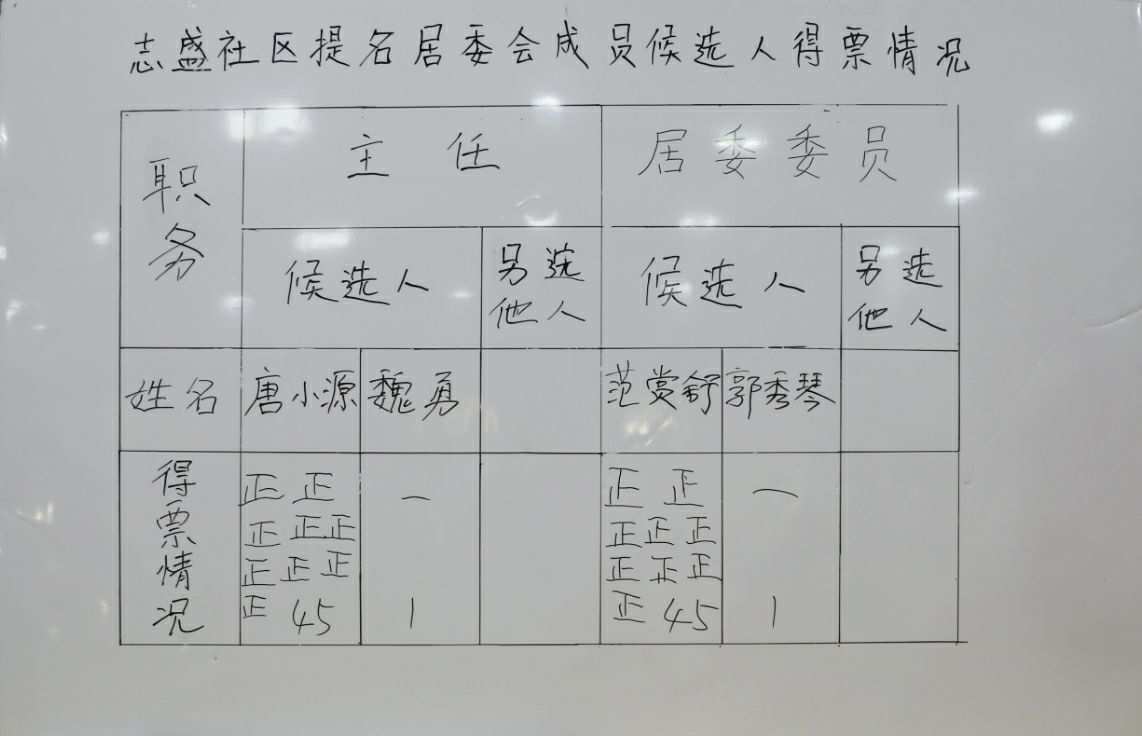 志盛社区提名居委会成员候选人得票情况
职务 主任 居委委员
候选人 另选他人 候选人 另选他人
姓名 唐小源 魏勇 范赏舒 郭秀琴
得票情况
正正 一 正正 一
正正正 正正正
正正正 正正正
正 45 1 正 45 1